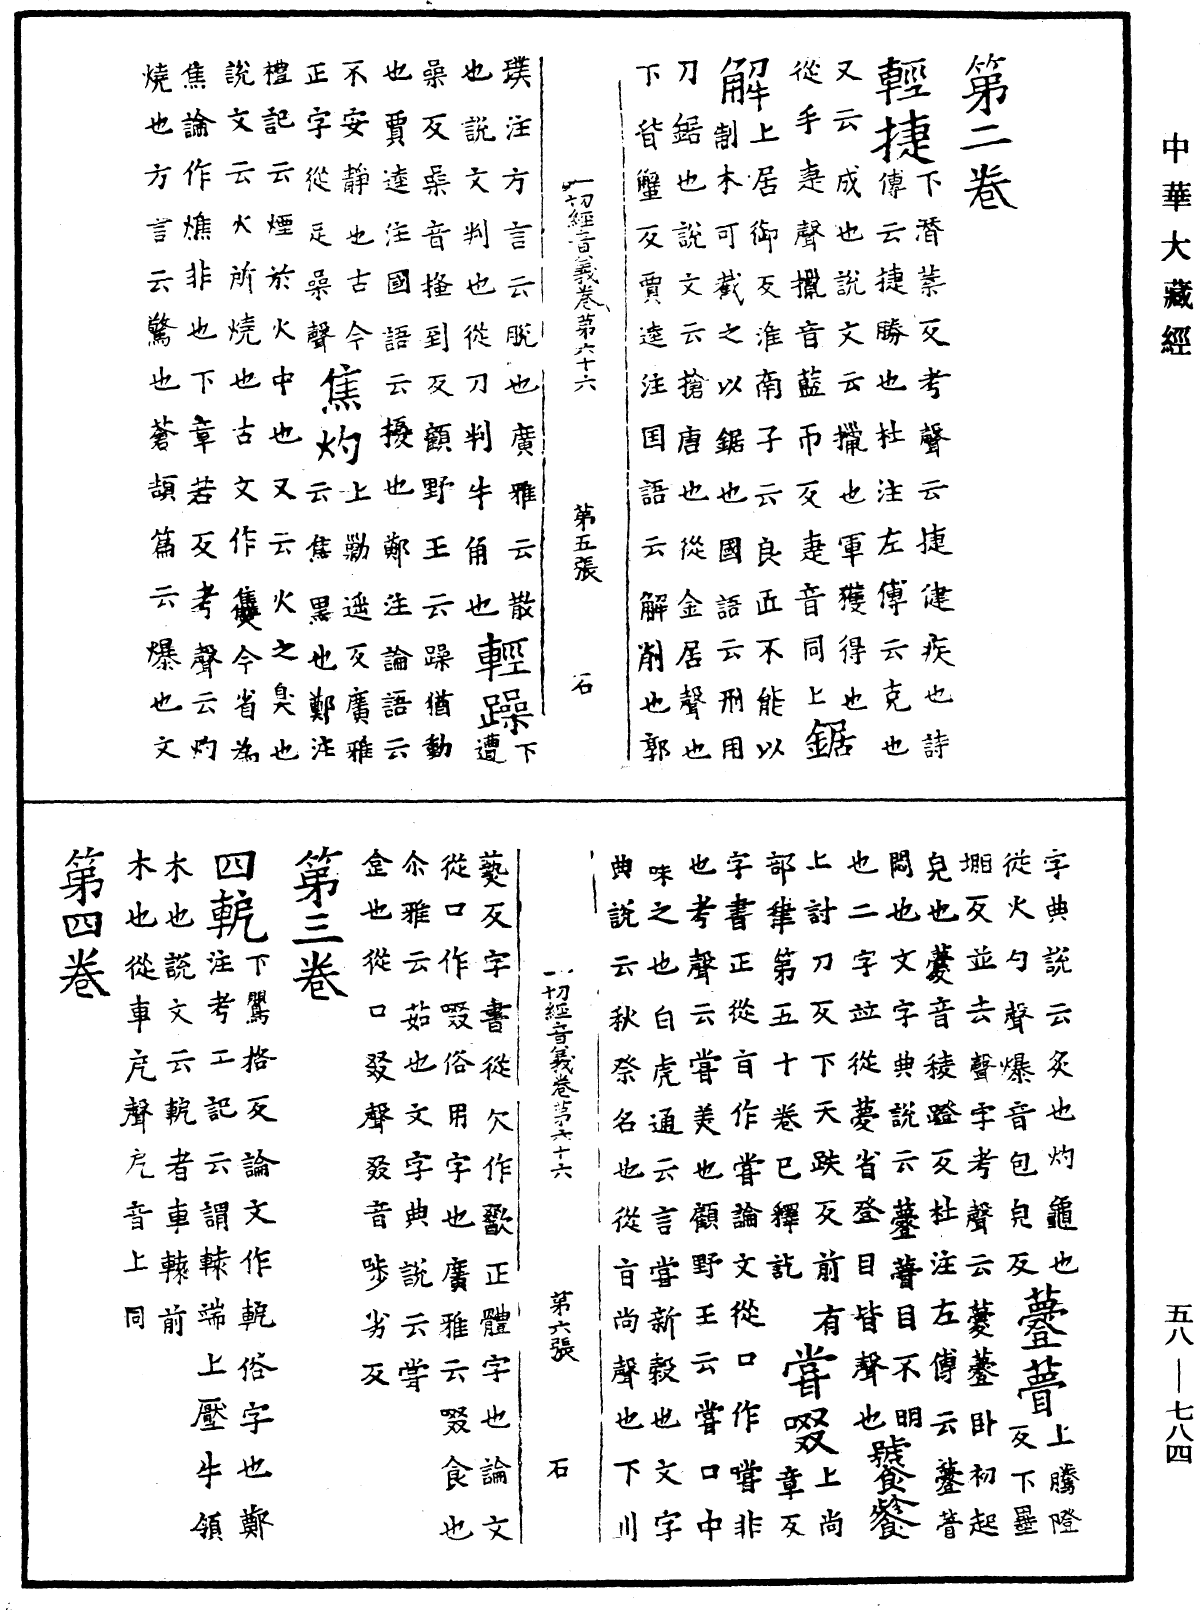 中華大藏經
第二卷
輕捷下潛葉反考聲云捷健疾也詩
傳云捷勝也杜注左傳云克也
又云成也說文云擸也軍獲得也
從手疌聲擸音藍帀反疌音同上鋸
解上居御反淮南子云良匠不能以
斲割木可截之以鋸也國語云刑用
刀鋸也說文云搶唐也從金居聲也
下皆蟹反賈逵注國語云解削也郭
一切經音義卷第六十六 第五張 石
璞注方言云脫也廣雅云散
也說文判也從刀判牛角也輕躁下遭
喿反喿音掻到反顧野王云躁猶動
也賈逵注國語云擾也鄭注論語云
不安靜也古今
正字從足喿聲
焦灼上勦遥反廣雅
云焦黑也鄭注
禮記云煙於火中也又云火之臭也
說文云火所燒也古文作𤓪今省為
焦論作燋非也下章若反考聲云灼
燒也方言云驚也蒼頡篇云爆也文
字典說云灸也灼龜也
從火勺聲爆音包皃反
薹瞢上騰隥
反下墨
堋反並去聲字考聲云㽑薹卧初起
皃也㽑音稜蹬反杜注左傳云薹瞢
悶也文字典說云薹瞢目不明
也二字竝從夢省登目皆聲也
號餐餮
上討刀反下天跌反前有
部律第五十卷已釋訖
甞啜上尚
章反
字書正從旨作甞論文從口作嚐非
也考聲云甞美也顧野王云甞口中
味之也白虎通云言甞新穀也文字
典說云秋祭名也從旨尚聲也下川
一切經音義卷第六十六 第六張 石
爇反字書從欠作歠正體字也論文
從口作啜俗用字也廣雅云啜食也
尒雅云茹也文字典說云甞
㑒也從口叕聲叕音啉劣反
第三卷
四軛下鸎格反論文作軶俗字也鄭
注考工記云謂轅端上壓牛領
木也說文云軶者車轅前
木也從車戹聲戹音上同
第四卷
五八—七八四